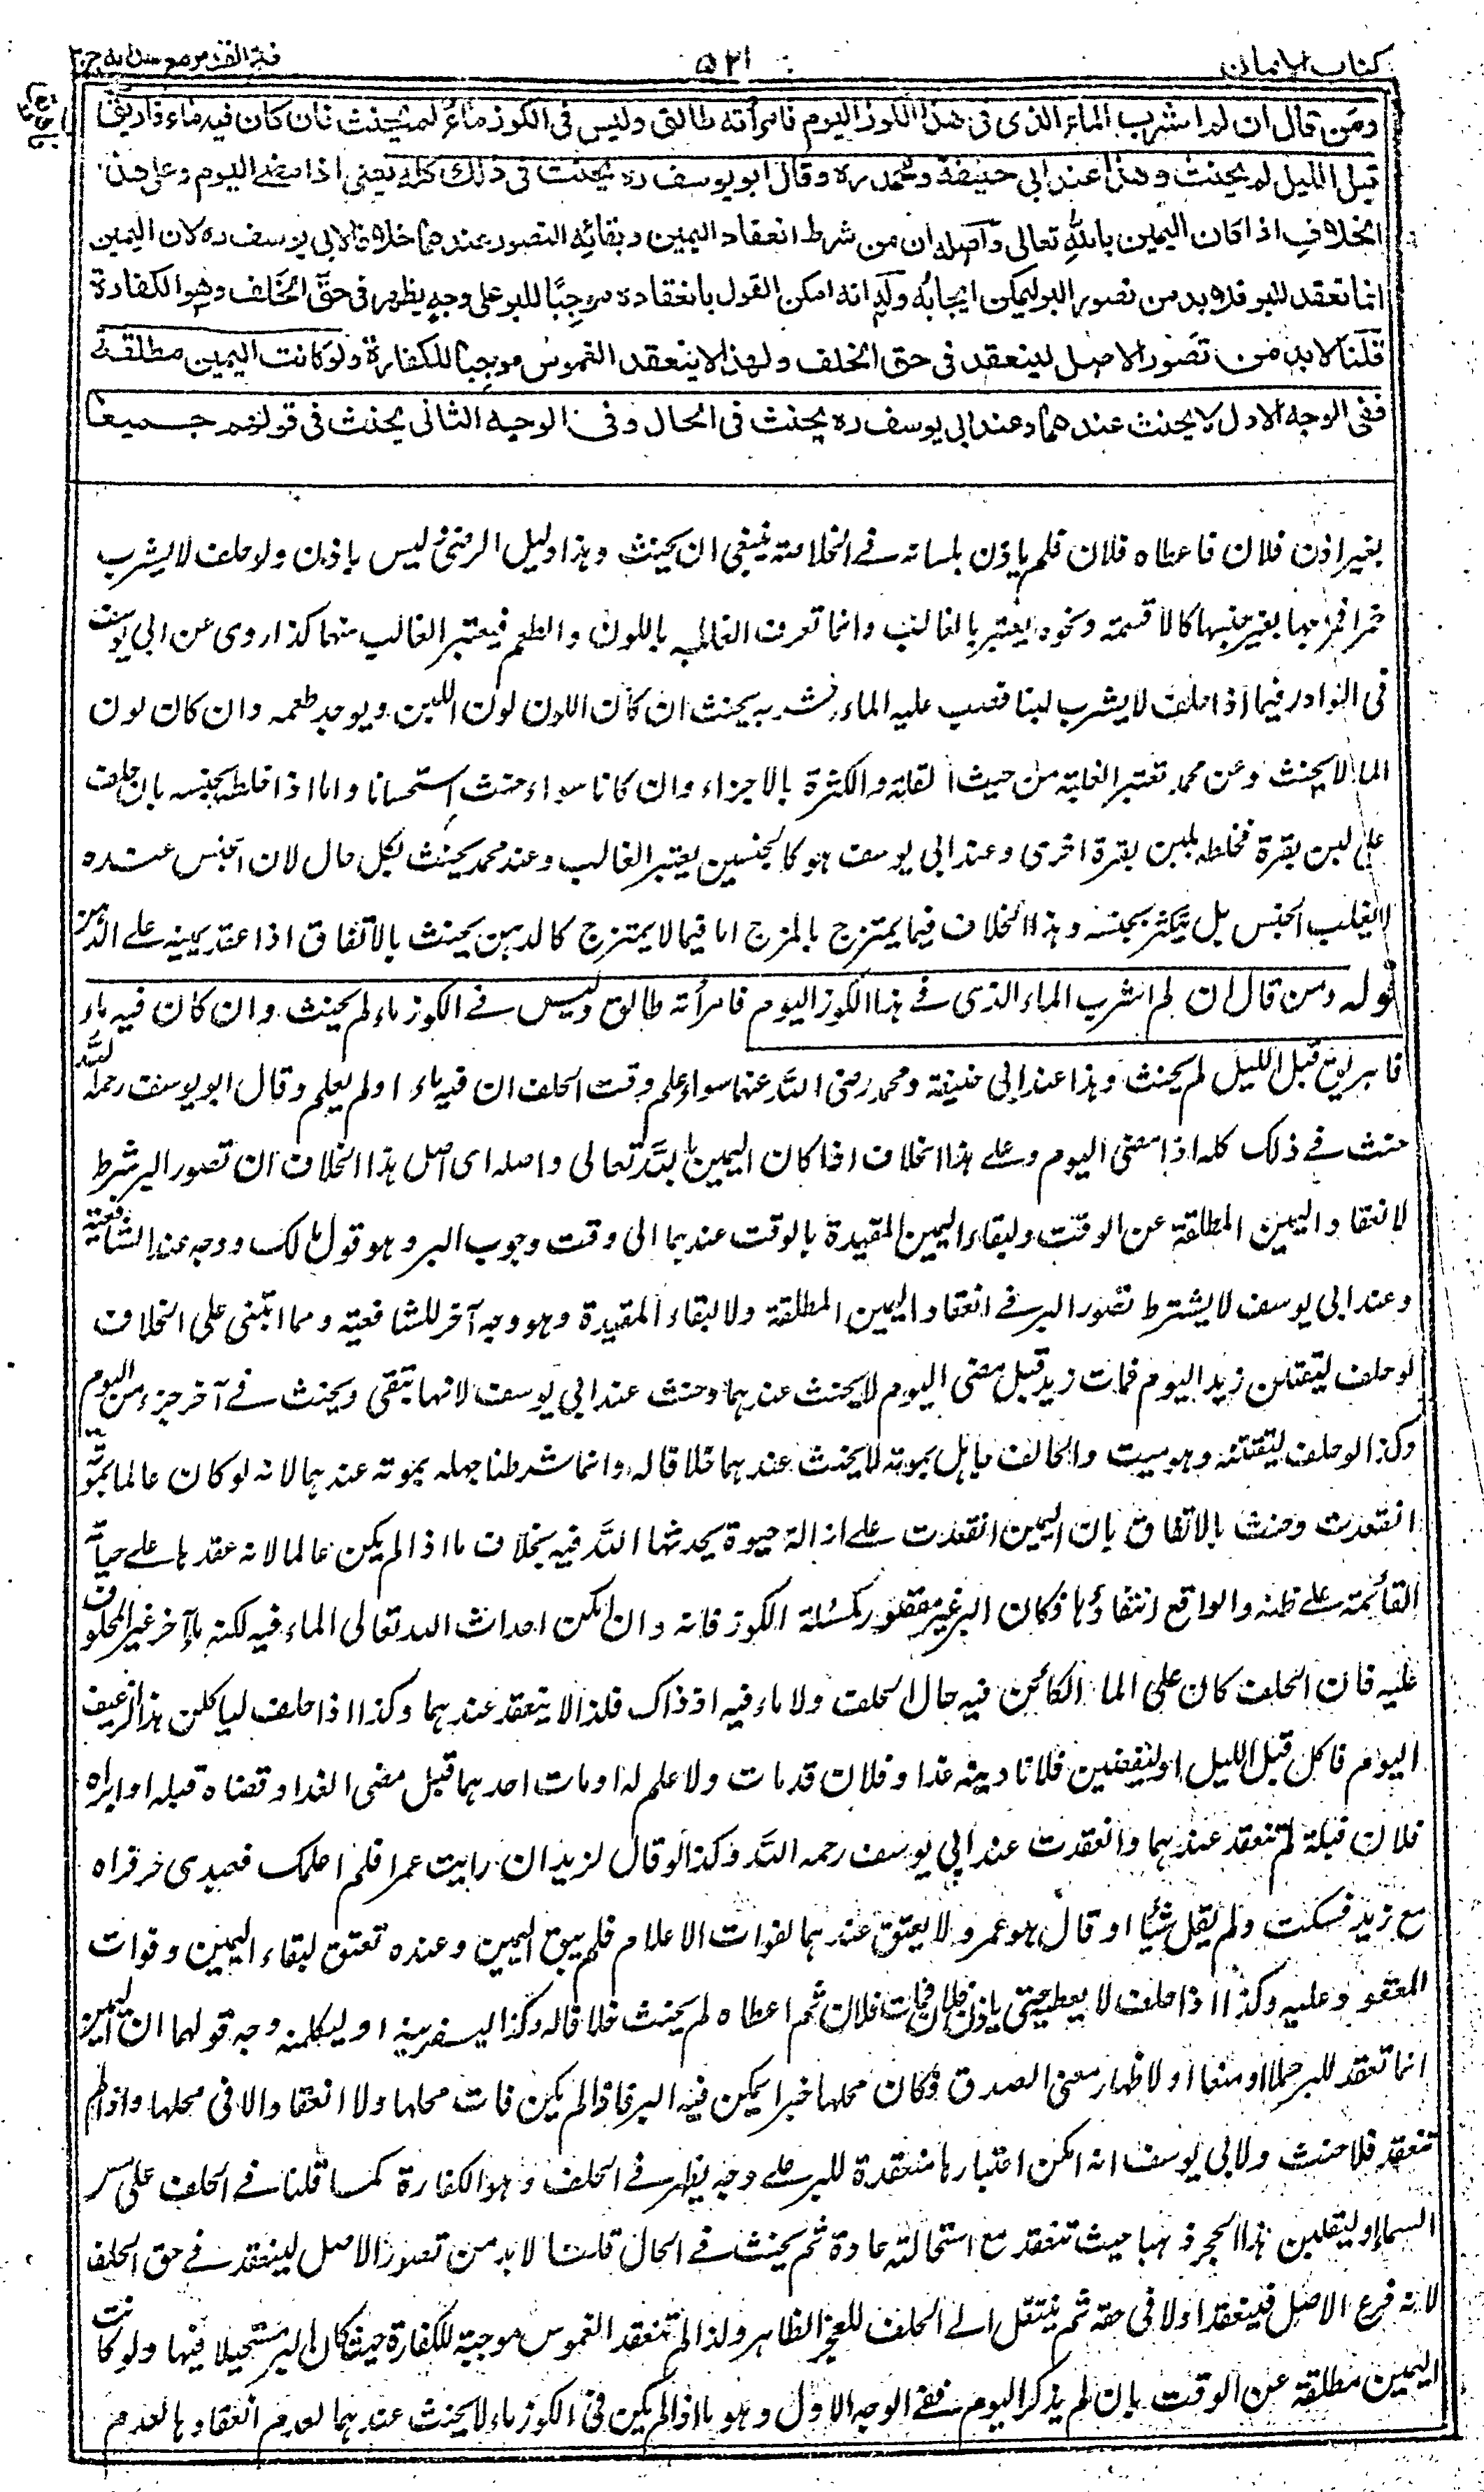 كتاب الايمان
٥٢١
فتح القدير مع هدايه ج ٢
ومن قال ان لم اشرب الماء الذى فى هذا الكوز اليوم فامرأته طالق وليس فى الكوز ماء لم يحنث فان كان فيه ماء فاريق
قبل الليل لم يحنث وهذا عند ابى حنيفة ومحمد ره وقال ابو يوسف ره يحنث فى ذلك كله يعنى اذا مضى اليوم وعلى هذا
الخلاف اذا كان اليمين بالله تعالى واصله ان من شرط انعقاد اليمين وبقائه التصور عندهما خلافا لابى يوسف ره لان اليمين
انما تعقد للبر فلا بد من تصور البر ليمكن ايجابه وله انه امكن القول بانعقاده موجبًا للبر على وجه يظهر فى حق الخلف وهو الكفارة
قلنا لا بد من تصور الاصل لينعقد فى حق الخلف ولهذا لا ينعقد الغموس موجبا للكفارة ولو كانت اليمين مطلقة
ففى الوجه الاول لا يحنث عندهما وعند ابى يوسف ره يحنث فى الحال وفى الوجه الثانى يحنث فى قولهم جميعا
بغير اذن فلان فاعطاه فلان فلم ياذن بلسانه فے الخلاصة ينبغى ان يحنث وهذا دليل الرضى ليس باذن ولو حلف لا يشرب
خمرا فمزجها بغير جنسها كالاقسمة ونحوه يعتبر بالغالب وانما تعرف الغالبه باللون والطعم فيعتبر الغالب منهما كذا روى عن ابى يوسف
فى النوادر فيما اذا حلف لا يشرب لبنا فصب عليه الماء فشربه يحنث ان كان اللون لون اللبن ويوجد طعمه وان كان لون
الماء لا يحنث وعن محمد تعتبر الغلبة من حيث القلة والكثرة بالاجزاء وان كانا سواء حنث استحسانا واما اذا خلطه بجنسه بان حلف
على لبن بقرة فخلطه بلبن بقرة اخرى وعند ابى يوسف هو كالجنسين يعتبر الغالب وعند محمد يحنث بكل حال لان الجنس عنده
لا يغلب الجنس بل يتكثر بجنسه وهذا الخلاف فيما يمتزج بالمزج اما فيما لا يمتزج كالدهن يحنث بالاتفاق اذا عقد يمينه على الدهن
قوله ومن قال ان لم اشرب الماء الذى فے هذا الكوز اليوم فامرأته طالق وليس فے الكوز ماء لم يحنث وان كان فيه ماء
فاهريق قبل الليل لم يحنث وهذا عند ابى حنيفة ومحمد رضى الله عنهما سواء علم وقت الحلف ان فيه ماء اولم يعلم وقال ابو يوسف رحمه الله
حنث فے ذلك كله اذا مضى اليوم وعلے هذا الخلاف اذا كان اليمين بالله تعالى واصله اى اصل هذا الخلاف ان تصور البر شرط
لانعقاد اليمين المطلقة عن الوقت ولبقاء اليمين المقيدة بالوقت عندهما الى وقت وجوب البر وهو قول مالك ووجه عند الشافعية
وعند ابى يوسف لا يشترط تصور البر فے انعقاد اليمين المطلقة ولا لبقاء المقيدة وهو وجه آخر للشافعية ومما ابتنى على الخلاف
لو حلف ليقتلن زيدا اليوم فمات زيد قبل مضى اليوم لا يحنث عندهما وحنث عند ابى يوسف لانها تبقى ويحنث فے آخر جزء من اليوم
وكذا لو حلف ليقتلنه وهو ميت والحالف جاهل بموته لا يحنث عندهما خلافا له وانما شرطنا جهله بموته عندهما لانه لو كان عالما بموته
انعقدت وحنث بالاتفاق بان اليمين انعقدت علے ازالة حيوة يحدثها الله فيه بخلاف ما اذا لم يكن عالما لانه عقدها علے حياته
القائمة علے ظنه والواقع انتفاؤها فكان البر غير متصور كمسئلة الكوز فانه وان امكن احداث الله تعالى الماء فيه لكنه ماء آخر غير المحلوف
عليه فان الحلف كان على الماء الكائن فيه حال الحلف ولا ماء فيه اذ ذاك فلذا لا ينعقد عندهما وكذا اذا حلف لياكلن هذا الرغيف
اليوم فاكل قبل الليل او ليقضين فلانا دينه غدا وفلان قد مات ولا علم له او مات احدهما قبل مضى الغد او قضاه قبله او ابراه
فلان قبله لم تنعقد عندهما وانعقدت عند ابى يوسف رحمه الله وكذا لو قال لزيد ان رايت عمرا فلم اعلمك فعبدى حر فراه
مع زيد فسكت ولم يقل شيئا او قال هو عمرو لا يعتق عندهما لفوات الاعلام فلم يبق اليمين وعنده تعتق لبقاء اليمين وفوات
المعقود عليه وكذا اذا حلف لا يعطيه حتى ياذن فلان فمات فلان ثم اعطاه لم يحنث خلافا له وكذا ليضربنه او ليكلمنه وجه قولهما ان اليمين
انما تعقد للبر حملا او منعا او لاظهار معنى الصدق فكان محلها خبرا يمكن فيه البر فاذا لم يكن فات محلها ولا انعقاد الا فى محلها واذا لم
تنعقد فلا حنث ولابى يوسف انه امكن اعتبارها منعقدة للبر علے وجه يظهر فے الخلف وهو الكفارة كما قلنا فے الحلف على مس
السماء او ليقلبن هذا الحجر ذهبا حيث تنعقد مع استحالته عادة ثم يحنث فے الحال قلنا لا بد من تصور الاصل لينعقد فے حق الخلف
لانه فرع الاصل فينعقد اولا فى حقه ثم ينتقل الے الخلف للعجز الظاهر ولذا لم تنعقد الغموس موجبة للكفارة حيث كان البر مستحيلا فيها ولو كانت
اليمين مطلقة عن الوقت بان لم يذكر اليوم ففے الوجه الاول وهو ما اذا لم يكن فى الكوز ماء لا يحنث عندهما لعدم انعقادها لعدم